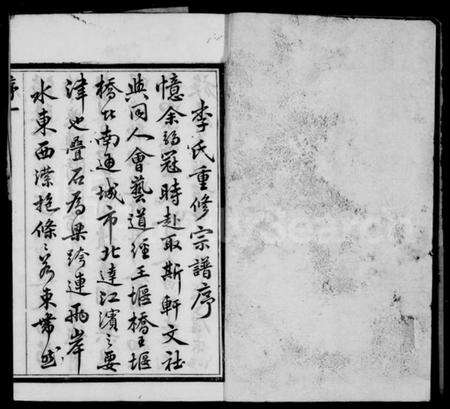 李氏重修宗譜序
憶余弱冠時赴取斯軒文社
與同人會藝道經王堰橋王堰
橋者南通城市北達江濱之要
津也疊石為梁跨連兩岸
水東西瀠抱條條若東帶然